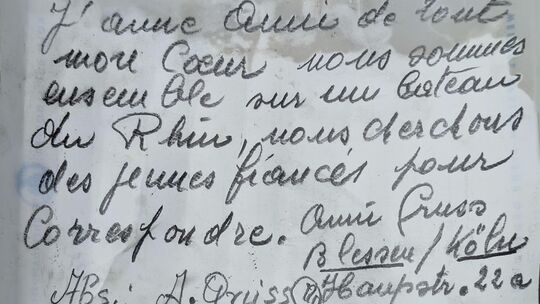 J'aime Anni de tout
mon Cœur nous sommes
ensemble sur un bateau
du Rhin, nous cherchons
des jeunes fiancés pour
Correspondre. Anni Gruss
Blessem/Köln
Abs: A. Gruss Hauptstr. 22a